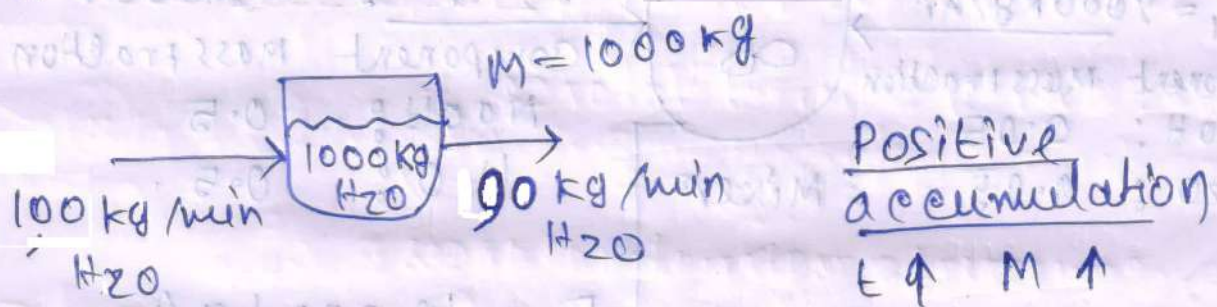 M = 1000 kg
1000 kg
H2O
100 kg/min
H2O
90 kg/min
H2O
Positive
accumulation
t ↑ M ↑